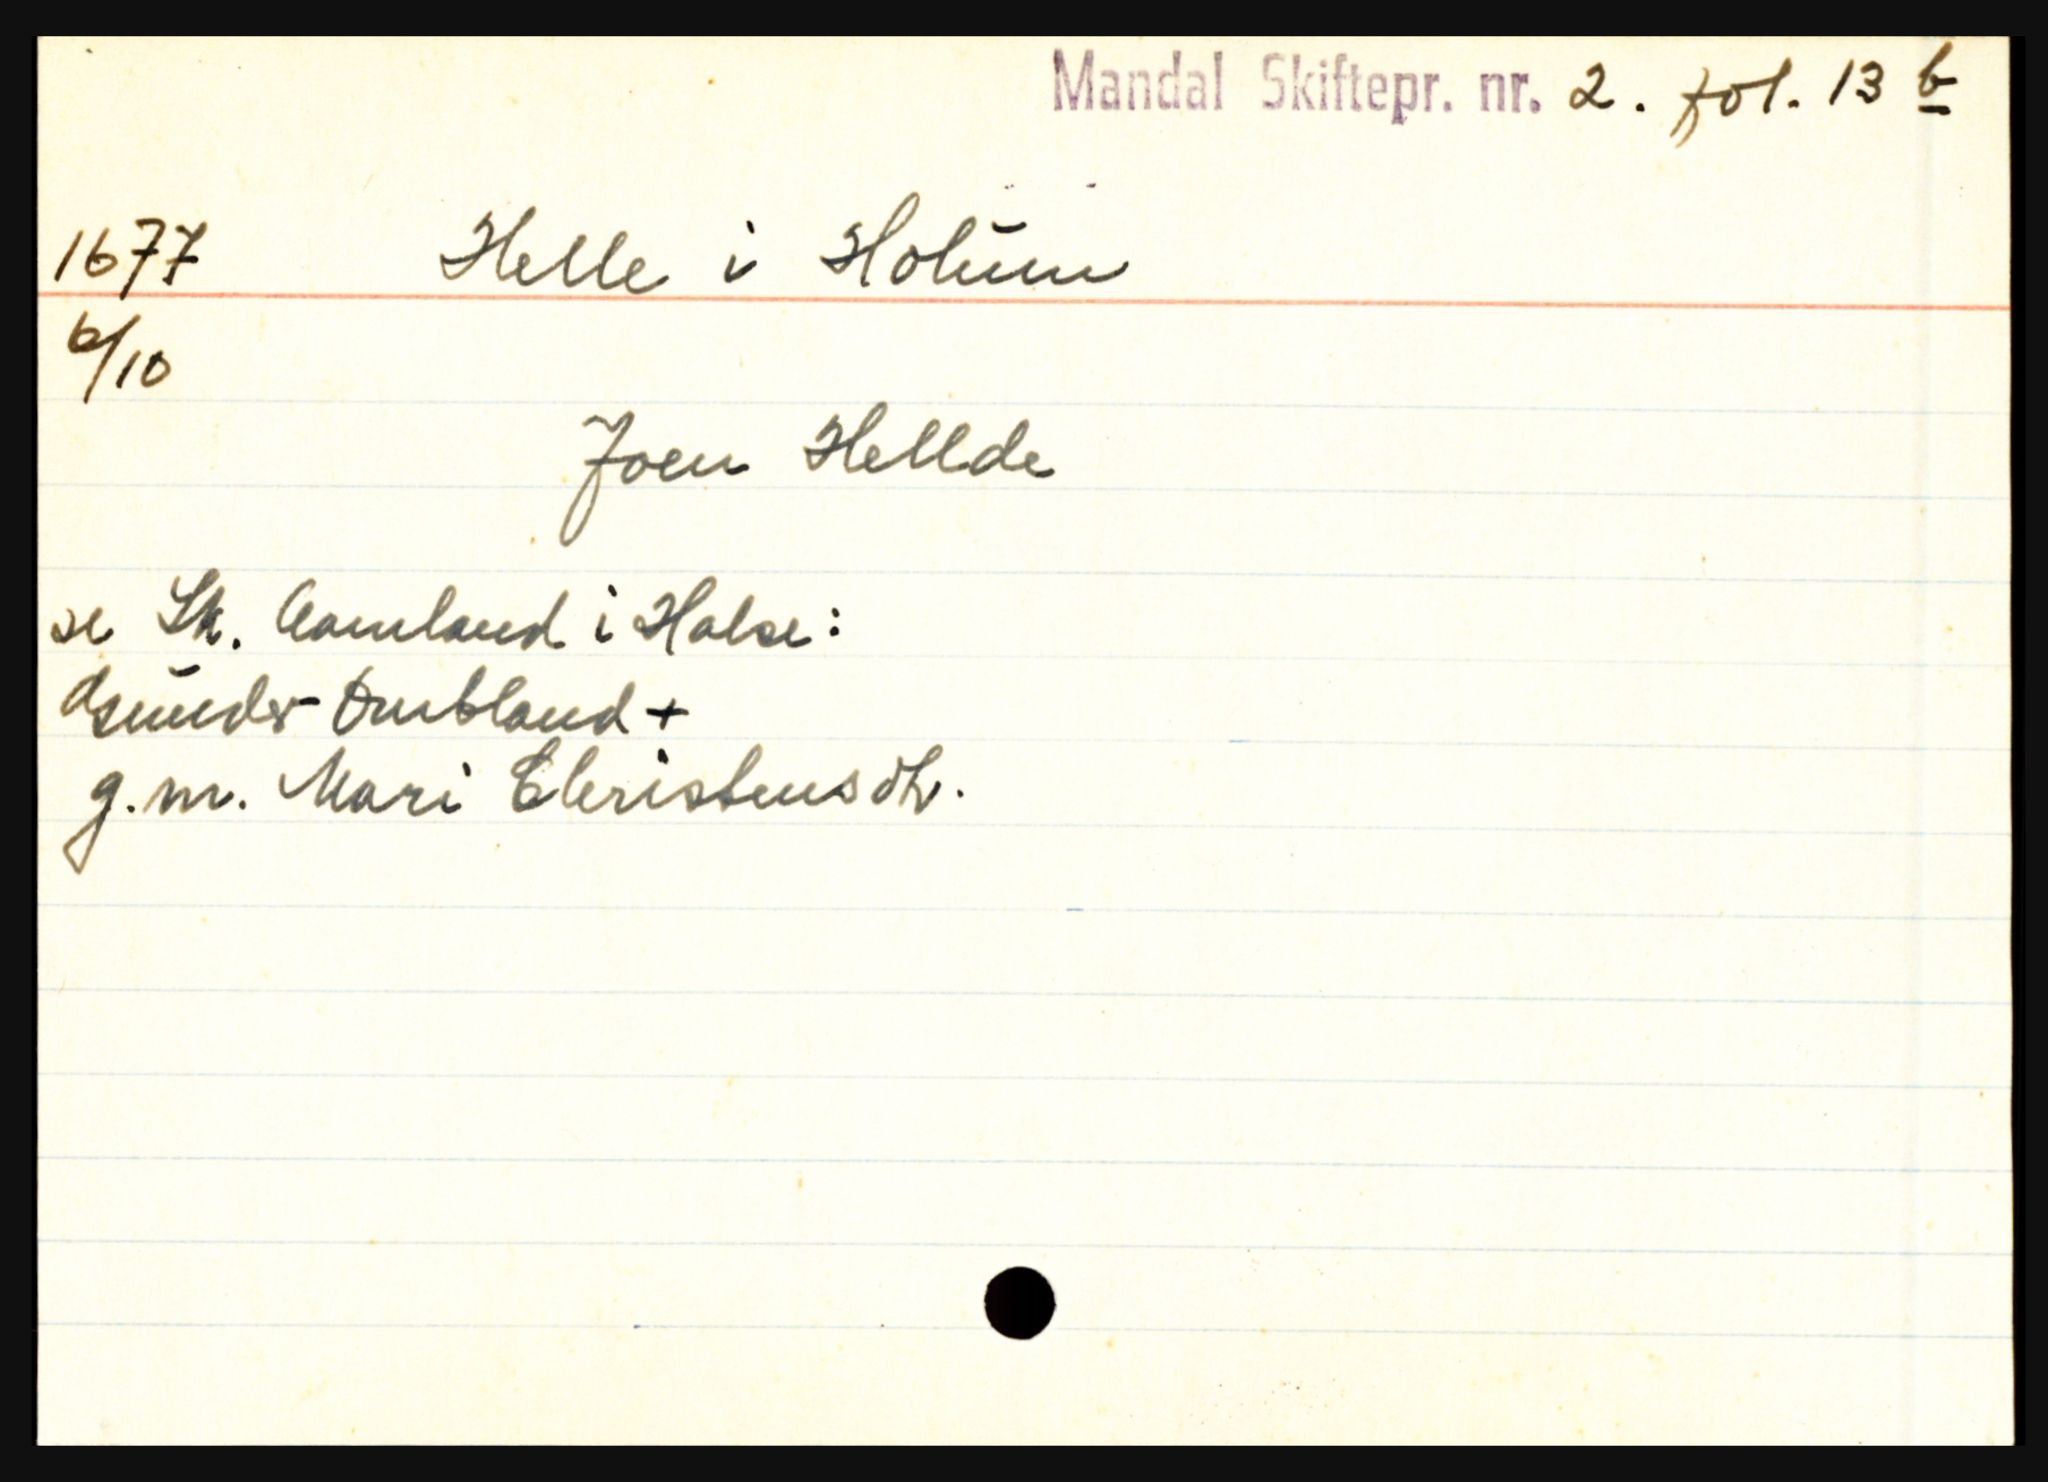 Mandal Skiftepr. nr. 2. fol. 13 b
1677 Helle i Holum
6/10
Joen Hellde
se Sk. Aamland i Halse:
Asunder Ombland +
g.m. Mari Christensdtr.